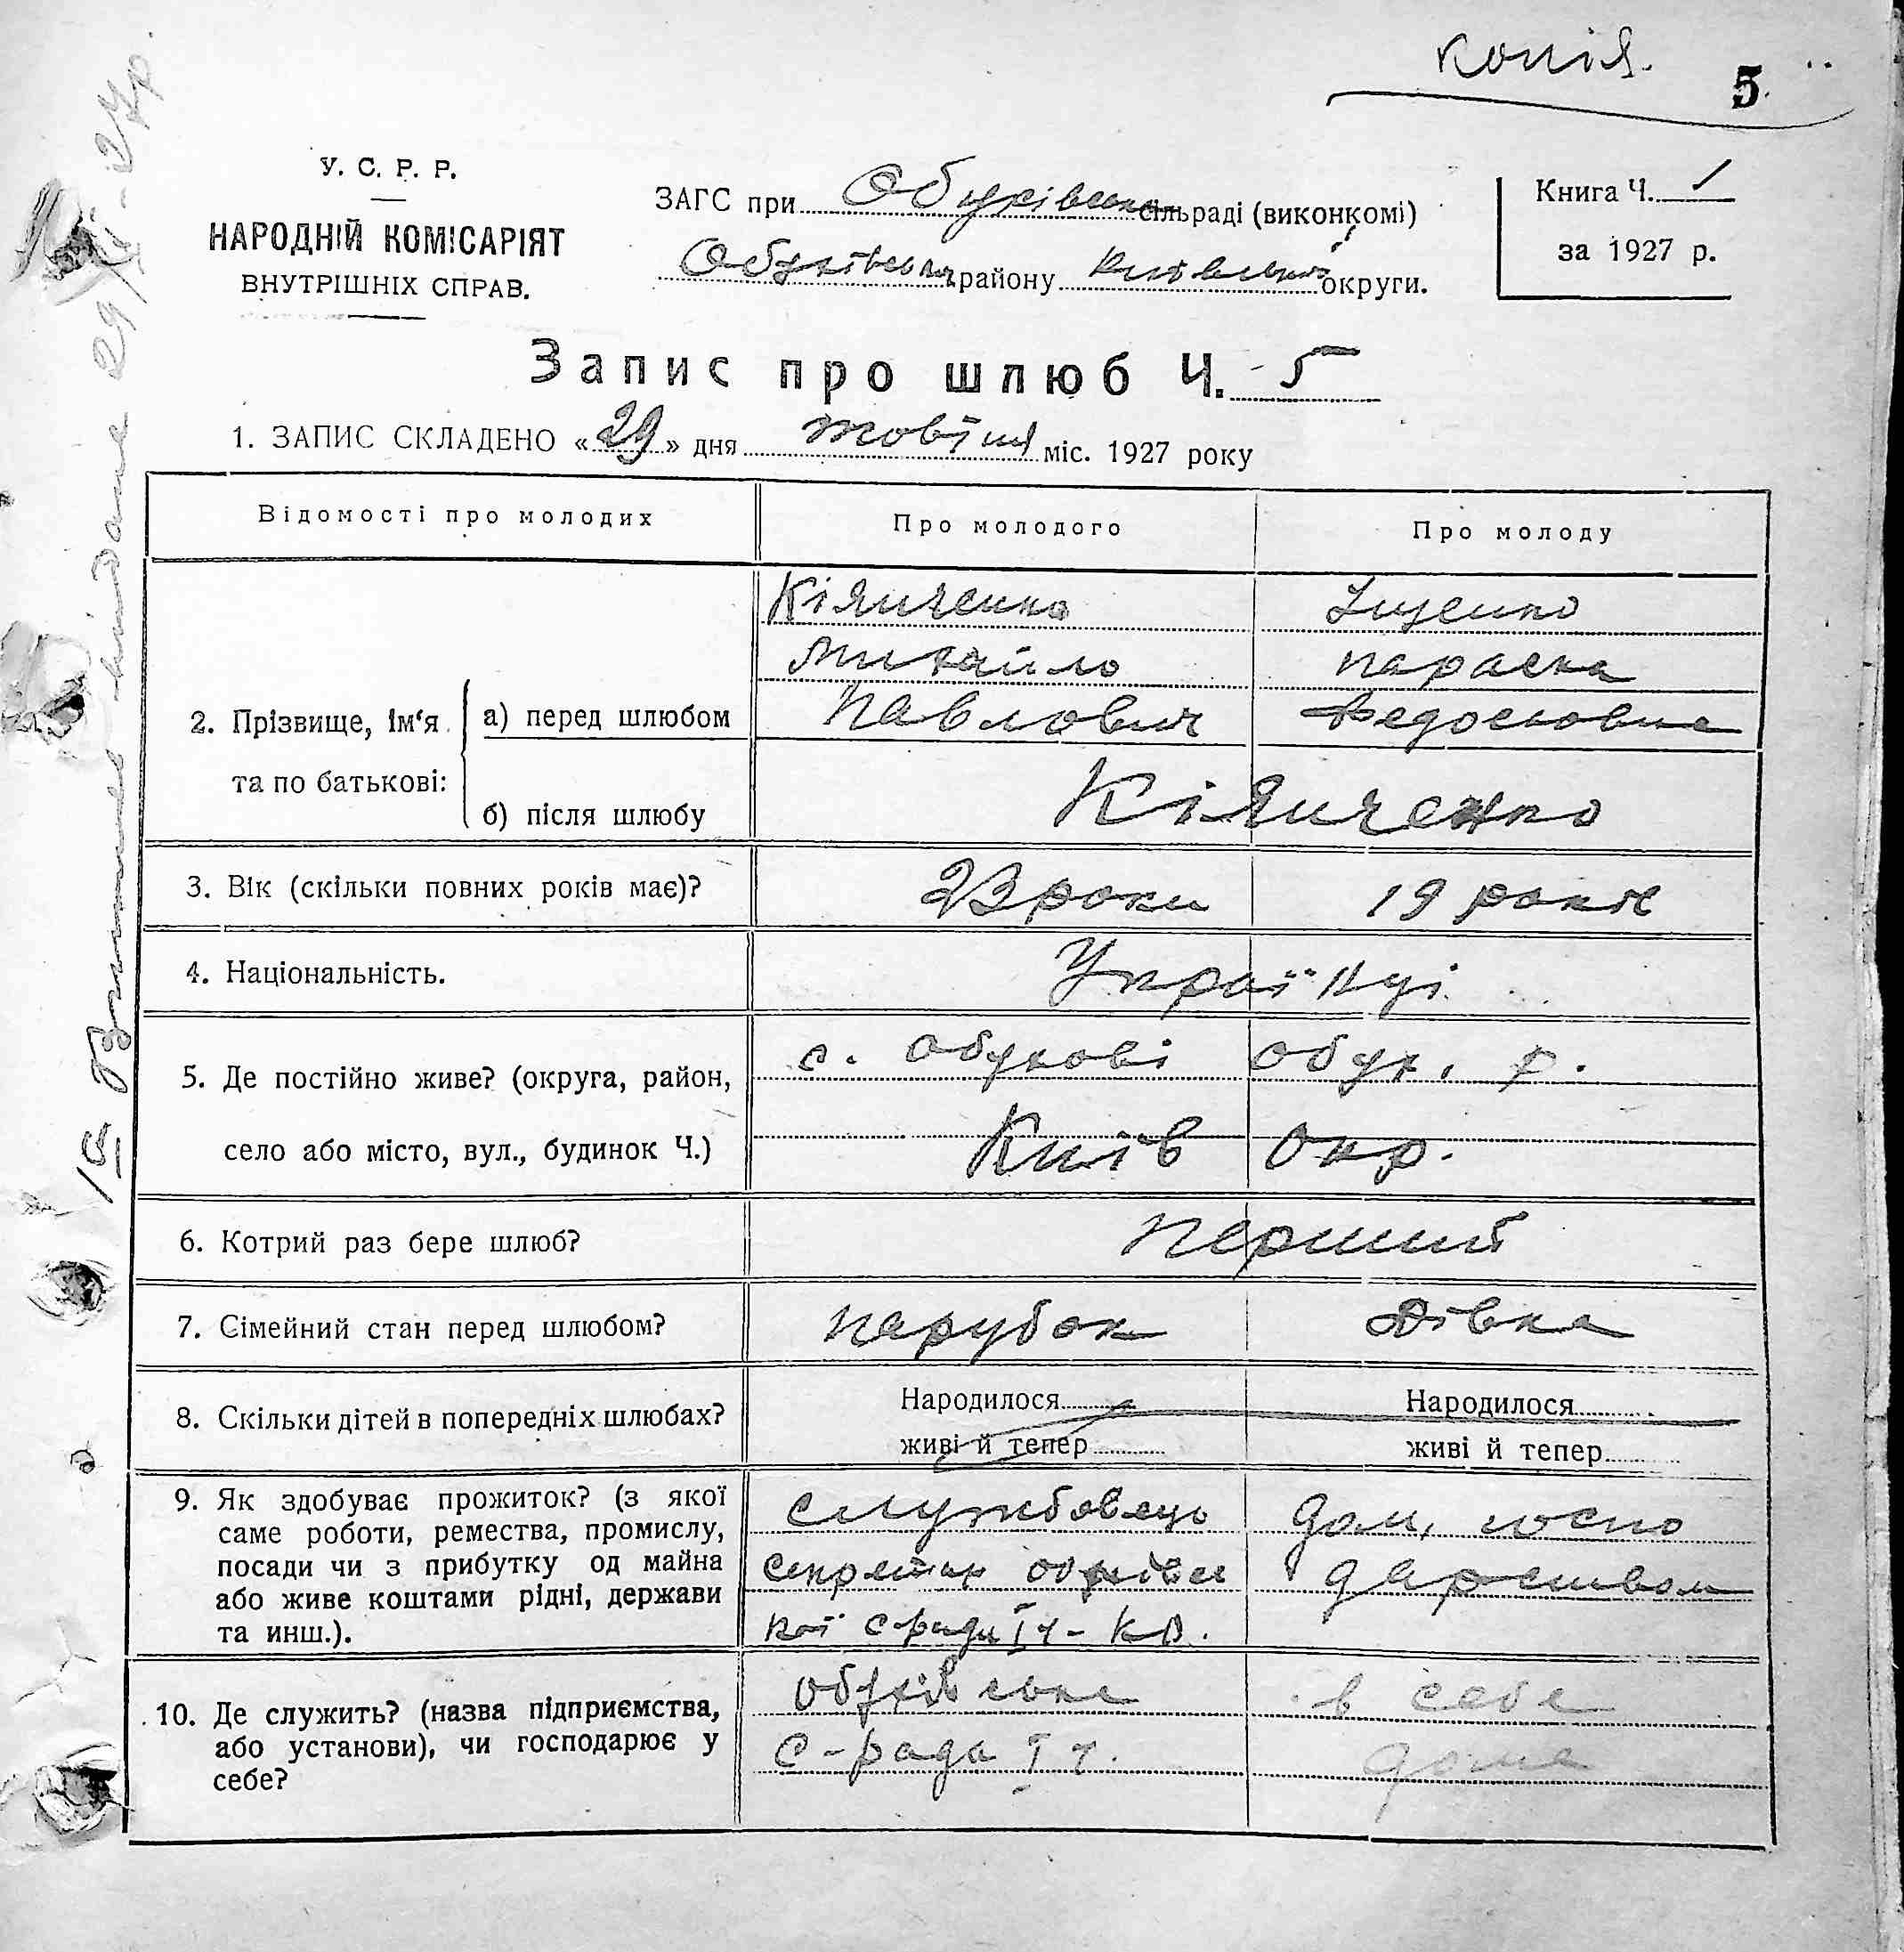 копія.
5
У. С. Р. Р.
НАРОДНІЙ КОМІСАРІЯТ
ВНУТРІШНІХ СПРАВ.
ЗАГС при Обухівській сільраді (виконкомі)
Обухівськ району Київської округи.
Книга Ч. 1
за 1927 р.
Запис про шлюб Ч. 5
1. ЗАПИС СКЛАДЕНО «29» дня жовтня міс. 1927 року
Відомості про молодих
Про молодого
Про молоду
2. Прізвище, ім'я та по батькові:
а) перед шлюбом
Кіяниченко
Михайло
Павлович
Іщенко
Параска
Федосіовна
б) після шлюбу
Кіяниченко
3. Вік (скільки повних років має)?
23 роки
19 років
4. Національність.
Українці
5. Де постійно живе? (округа, район,
село або місто, вул., будинок Ч.)
с. Обухові Обух. р.
Київ Окр.
6. Котрий раз бере шлюб?
перший
7. Сімейний стан перед шлюбом?
парубок
Дівка
8. Скільки дітей в попередніх шлюбах?
Народилося
живі й тепер
Народилося
живі й тепер
9. Як здобуває прожиток? (з якої
саме роботи, ремества, промислу,
посади чи з прибутку од майна
або живе коштами рідні, держави
та инш.).
службовець
секретар Обухівсь
кої с-ради І ч-
дом. госпо
дарством
10. Де служить? (назва підприємства,
або установи), чи господарює у
себе?
Обухівська
С-рада І ч.
в себе
дома